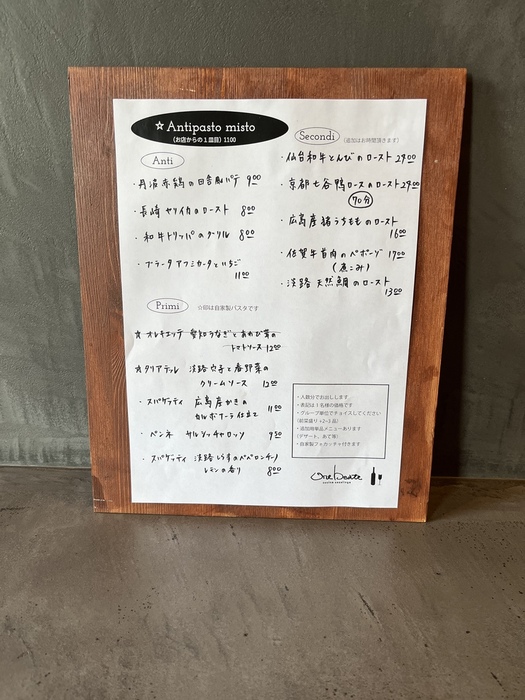 ☆ Antipasto misto
(お店からの１皿目) 1100
Anti
・丹波赤鶏の田舎風パテ 900
・長崎ヤリイカのロースト 800
・和牛トリッパのグリル 800
・ブラータアフミカータといちご
1100
Primi ☆印は自家製パスタです
☆オレキエッテ 愛知うなぎとあわび茸の
トマトソース 1200
☆タリアテッレ 淡路穴子と春野菜の
クリームソース 1200
・スパゲッティ 広島産かきの
カルボナーラ仕立て 1100
・ペンネ サルシッチャロッソ 950
・スパゲッティ 淡路しらすのペペロンチーノ
レモンの香り 800
Secondi (追加はお時間頂きます)
・仙台和牛とんびのロースト 2400
・京都七谷鴨ロースのロースト 2400
70分
・広島産猪うちもものロースト
1600
・佐賀牛首肉のペポーゾ 1700
(煮こみ)
・淡路 天然鯛のロースト
1300
・人数分でお出しします。
・表記は１名様の価格です
・グループ単位でチョイスしてください
(前菜盛り+2~3皿)
・追加用単品メニューあります
(デザート、あて等)
・自家製フォカッチャ付きます